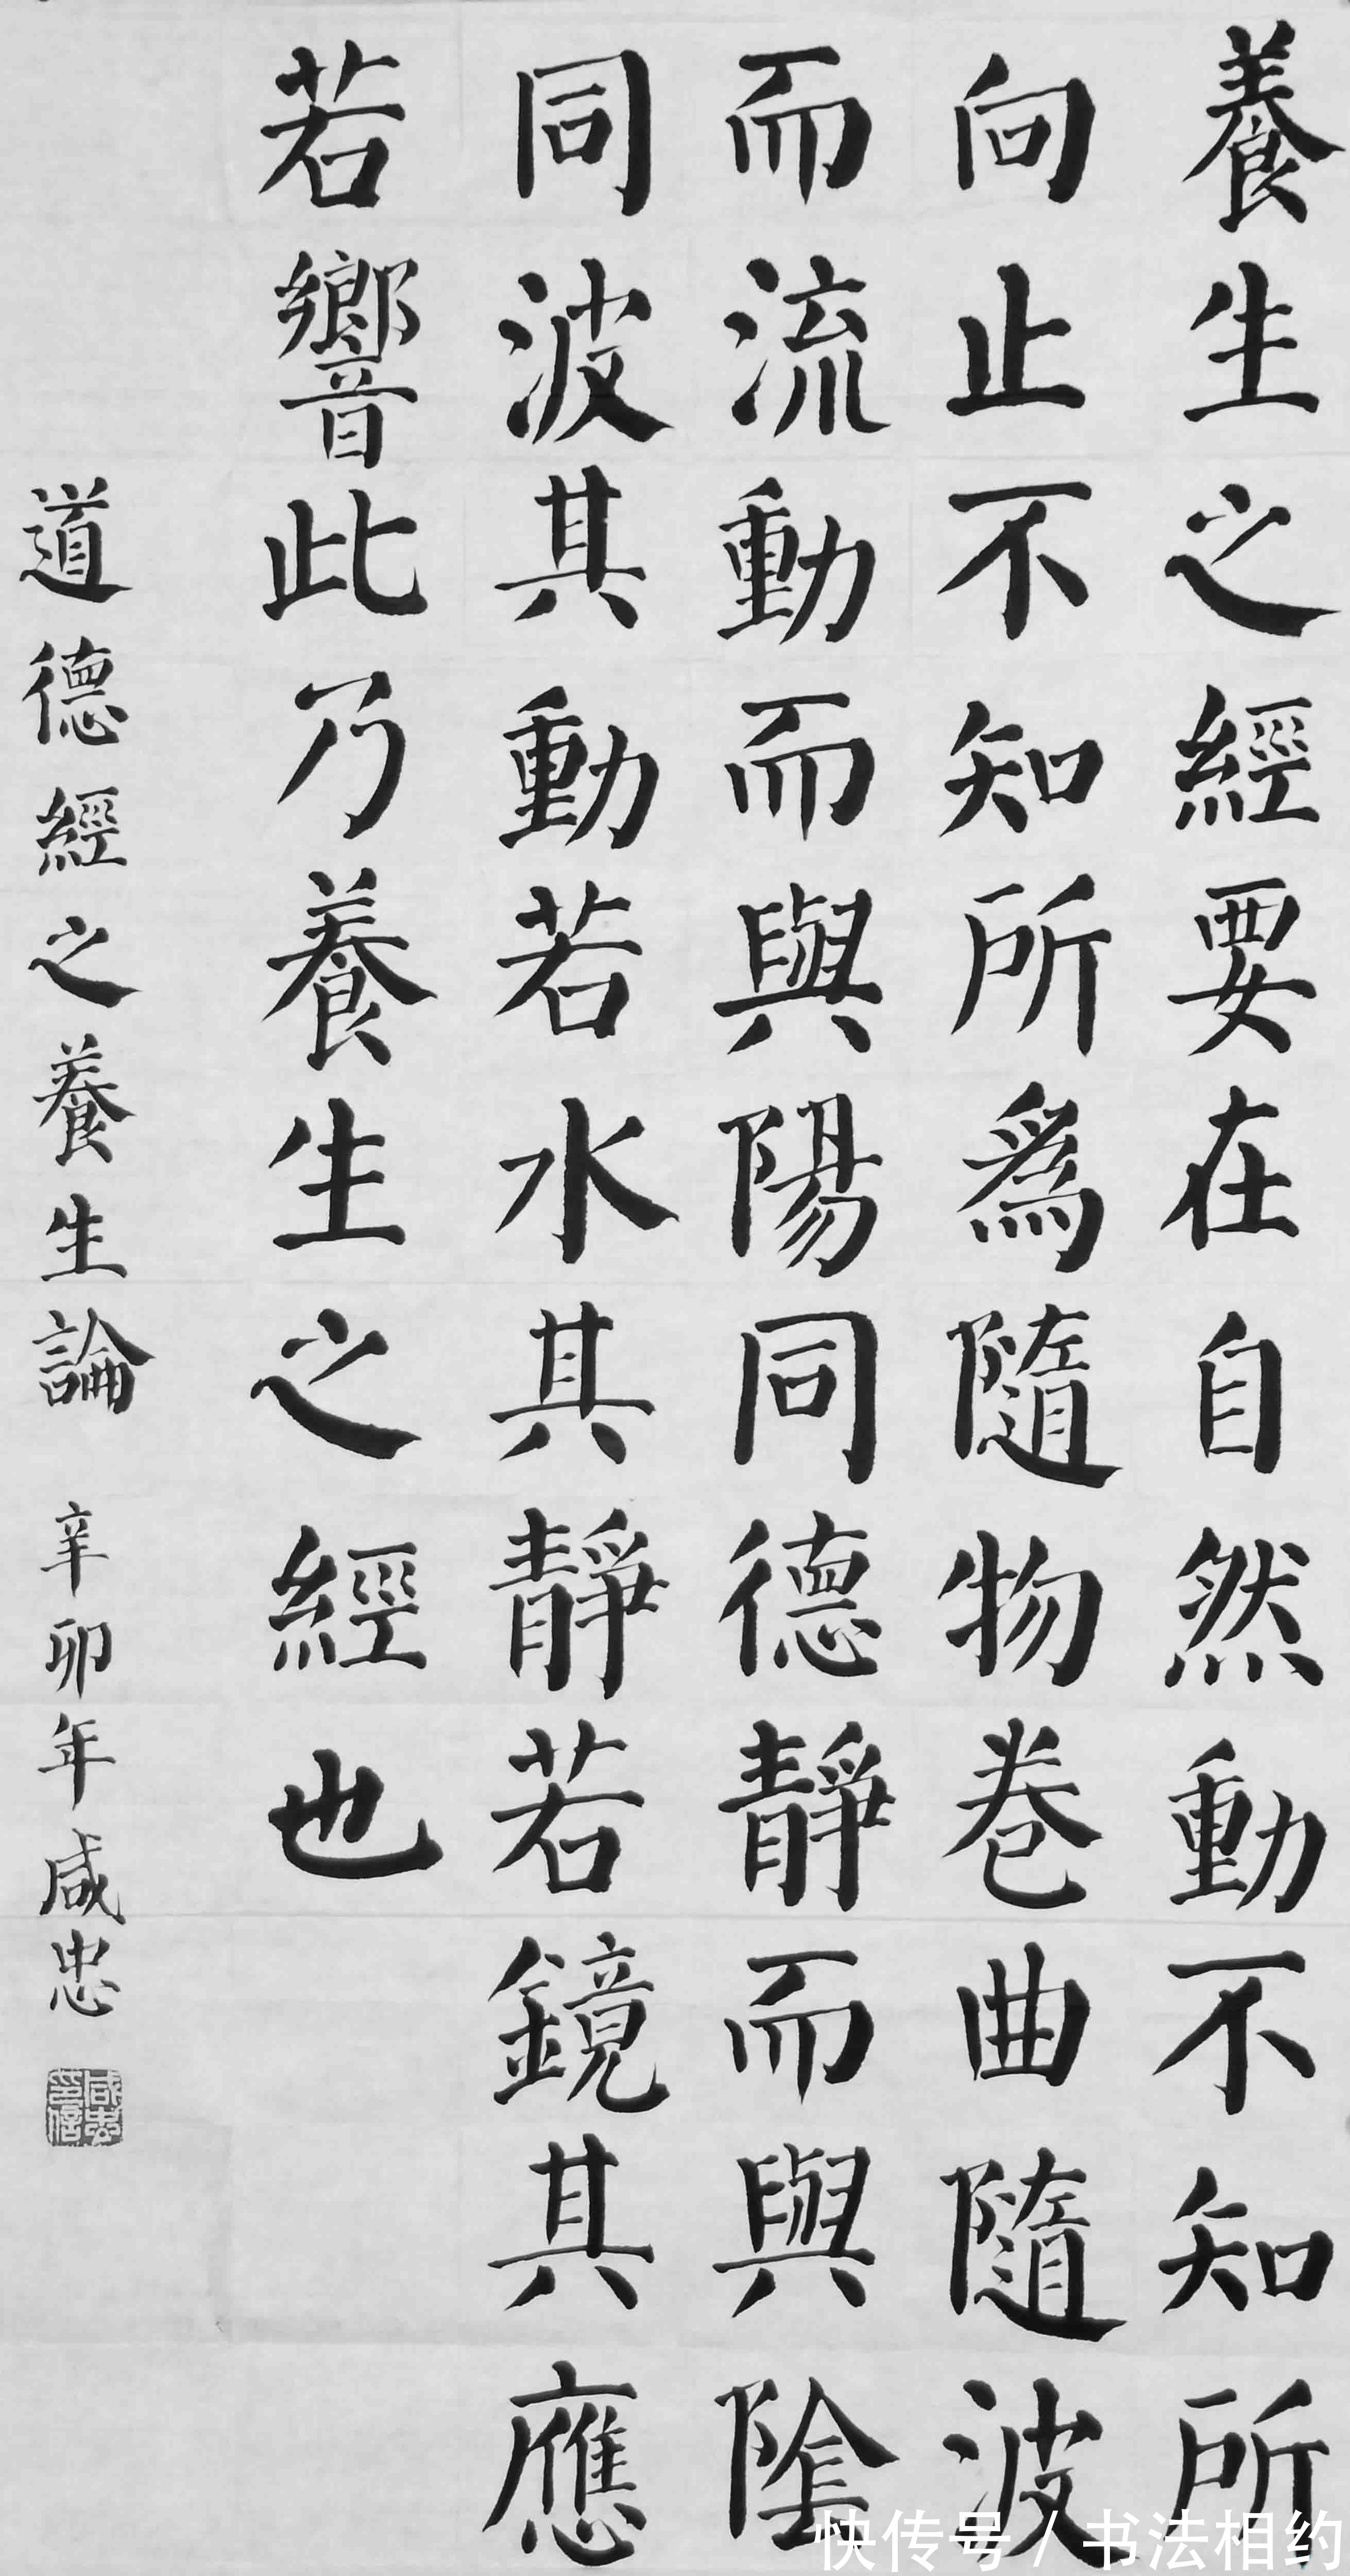 養生之經要在自然動不知所
向止不知所爲隨物卷曲隨波
而流動而與陽同德靜而與陰
同波其動若水其靜若鏡其應
若響此乃養生之經也
道德經之養生論 辛卯年咸忠
咸忠印信
快传号/书法相约